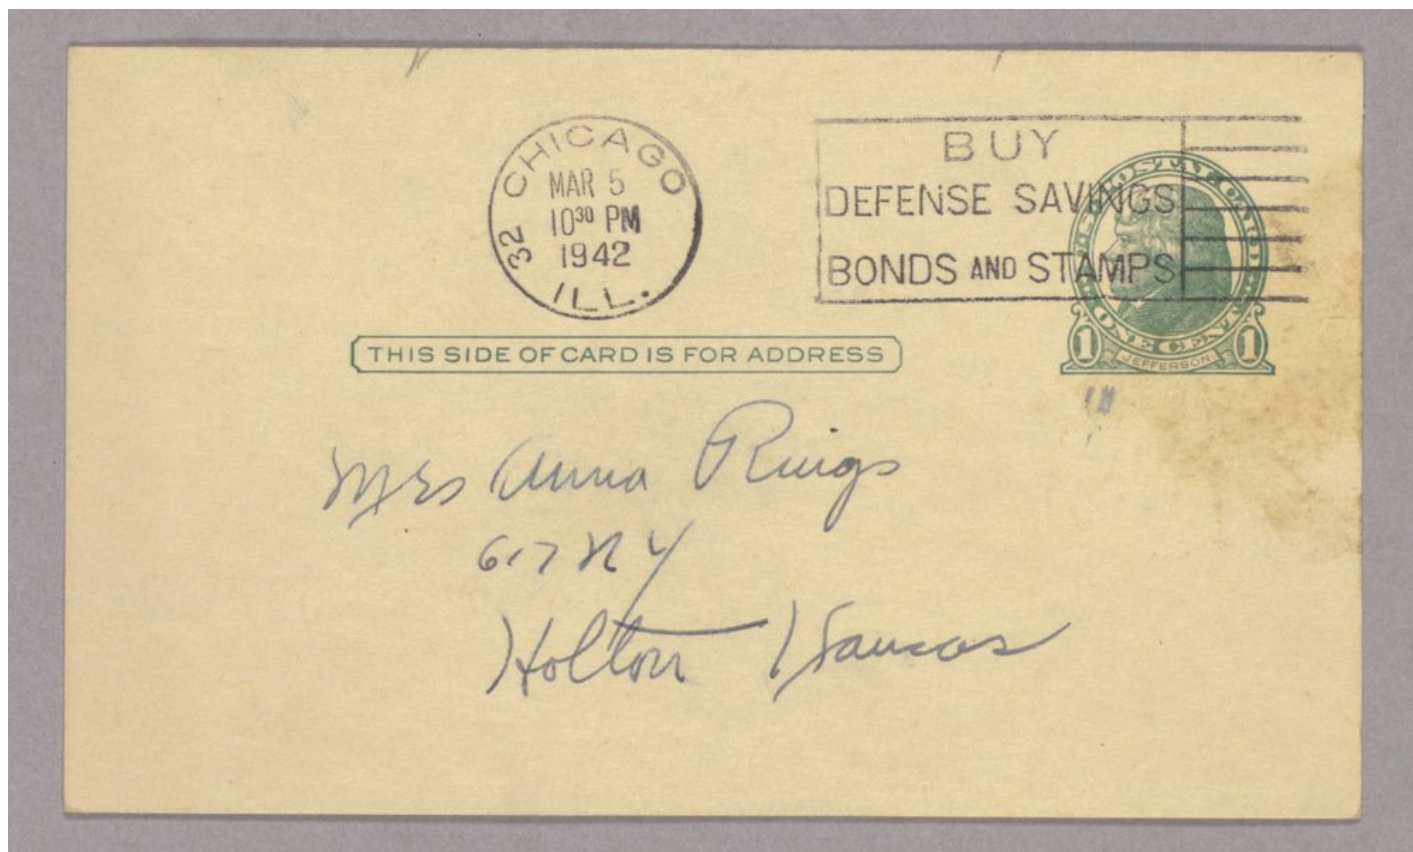 32 CHICAGO ILL.
MAR 5
10 30 PM
1942
BUY
DEFENSE SAVINGS
BONDS AND STAMPS
U.S. POSTAL CARD
ONE CENT
1 JEFFERSON 1
THIS SIDE OF CARD IS FOR ADDRESS
Mrs Anna Rings
617 N Y
Holton Kansas